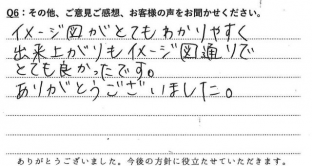 Q6：その他、ご意見ご感想、お客様の声をお聞かせください。
イメージ図がとてもわかりやすく
出来上がりもイメージ図通りで
とても良かったです。
ありがとうございました。
ありがとうございました。今後の方針に役立たせていただきます。